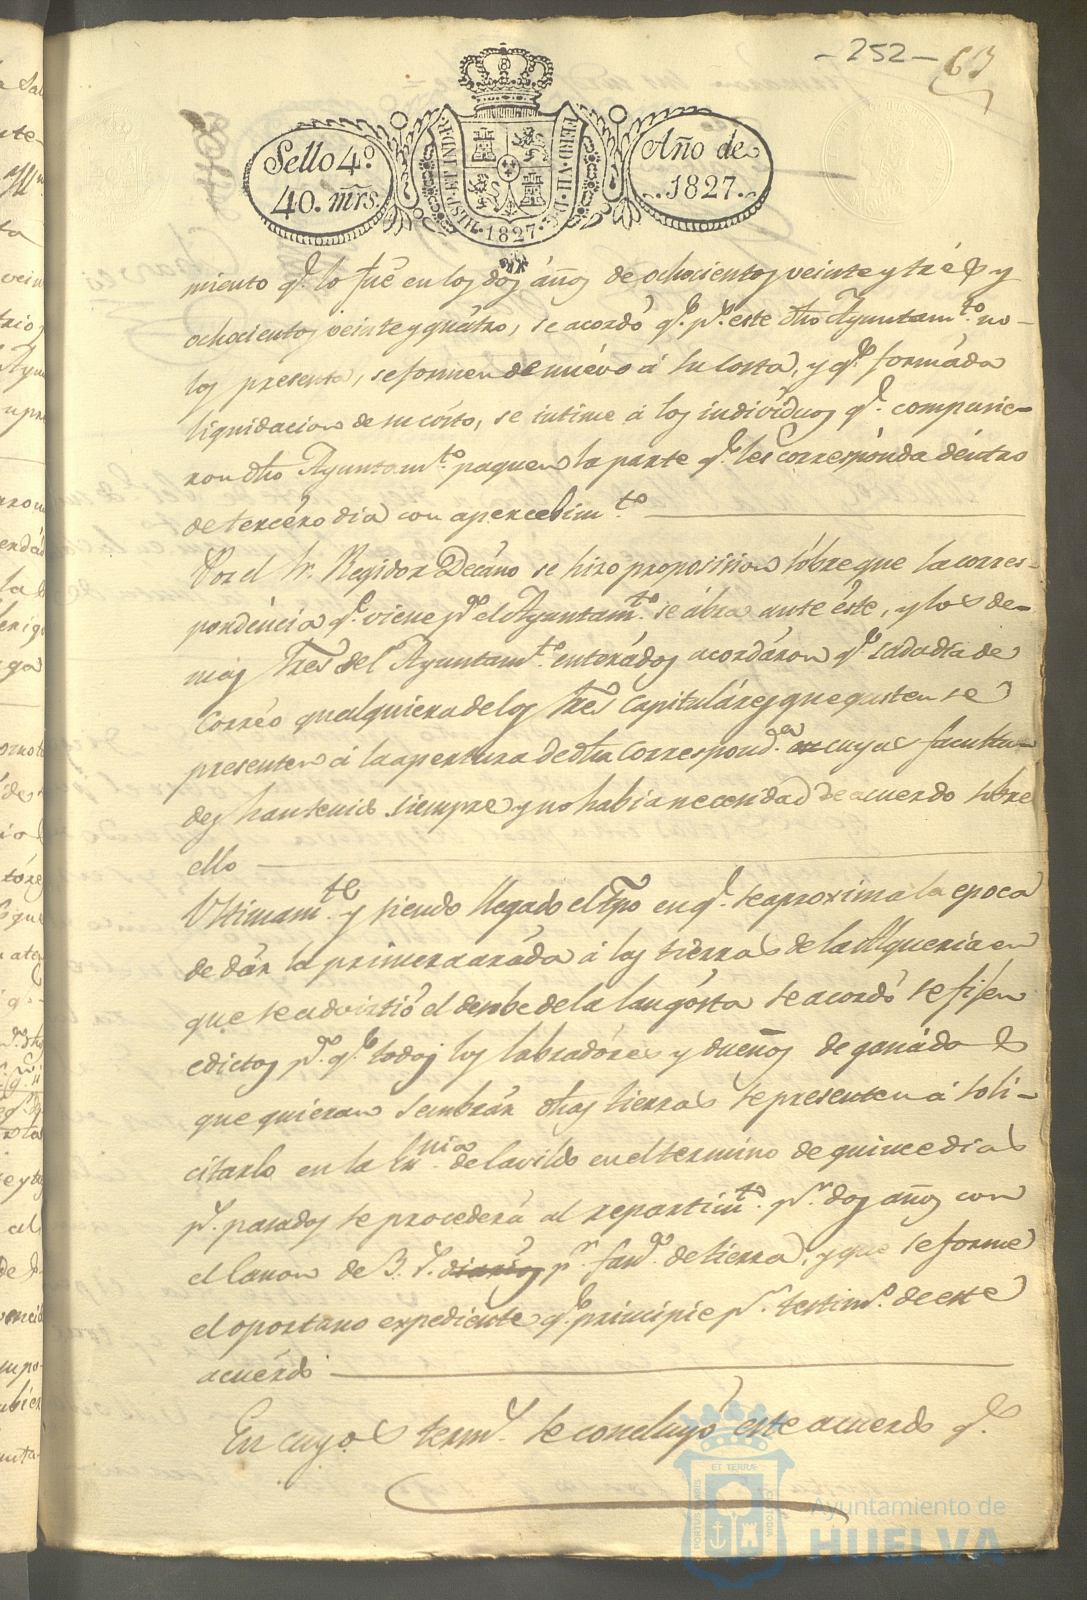 - 252 -
63
Sello 4º
40. mrs.
HISP. ET IND. R.
FERD. VII. D. G.
·1827·
Año de
1827.
miento q.e lo fué en los dos áños de ochocientos veinte y trés y
ochocientos veinte y quátro, se acordó q.e p.r este dho Ayuntam.to no
los presenta, se formen de nuévo á su costa, y q.e formáda
liquidacion de su costo, se intime á los indivíduos q.e compusie-
ron dho Ayuntam.to paguen la parte q.e les correspónda déntro
de tercéro dia con apercebim.to
Por el Sr. Regidor Decáno se hizo proposision sóbre que la corres-
pondéncia q.e viene p.a el Ayuntam.to se ábra ante éste, y los de-
mas Sres del Ayuntam.to enterádos acordáron q.e cada dia de
Corréo qualquiera de los Sres Capituláres que gusten se
presenten á la apertura de dha Correspond.a cuyas faculta-
des han tenido siempre y no habia necesidad de acuerdo sobre
ello
Ultimam.te y siendo llegado el tpo en q.e se aproxima la epoca
de dár la primera aráda á las tierras de la Alqueria en
que se advirtió el desobe de la langósta se acordó se fijén
edictos p.a q.e todos los labradóres y dueños de ganádo
que quieran sembrár dhas tierras se presenten á soli-
citarlo en la Ess.nia de Cavildo en el termino de quince dias
p.s pasados se procederá al repartim.to p.r dos años con
el Canon de 3. r.s p.r fan.a de tierra, y que se forme
el oportuno expediente q.e principie p.r testim.o de este
acuérdo
En cuyos term.s se concluyó este acuerdo q.e
PORTUS MARIS
ET TERRÆ
CUSTODIA
Ayuntamiento de
HUELVA